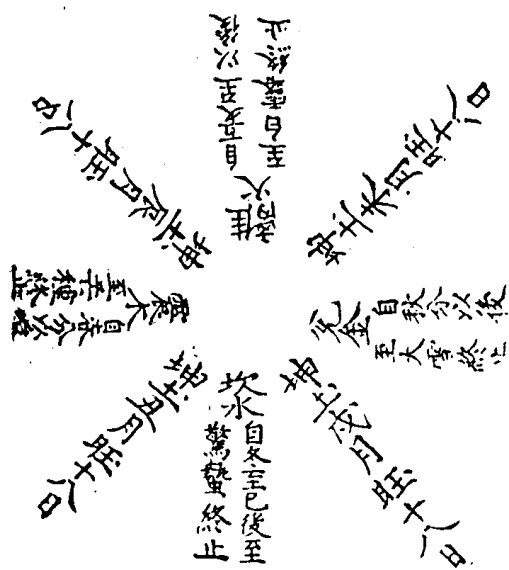 離火
自夏至以後
至白露終止
坤土未月旺十八日
兌金
自秋分以後
至大雪終止
坤土戌月旺十八日
坎水
自冬至已後至
驚蟄終止
坤土丑月旺十八日
震木
自春分
至芒種終止
坤土辰月旺十八日